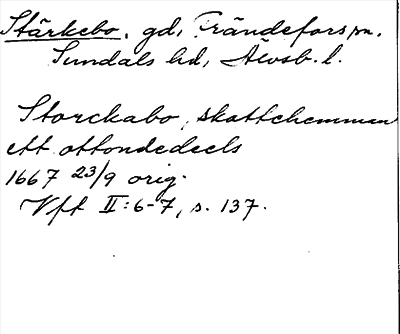 Stärkebo, gd, Frändefors sn.
Sundals hd, Älvsb. l.
Storckabo, skattehemman
ett ottondedeels
1667 23/9 orig.
Vft II:6-7, s. 137.